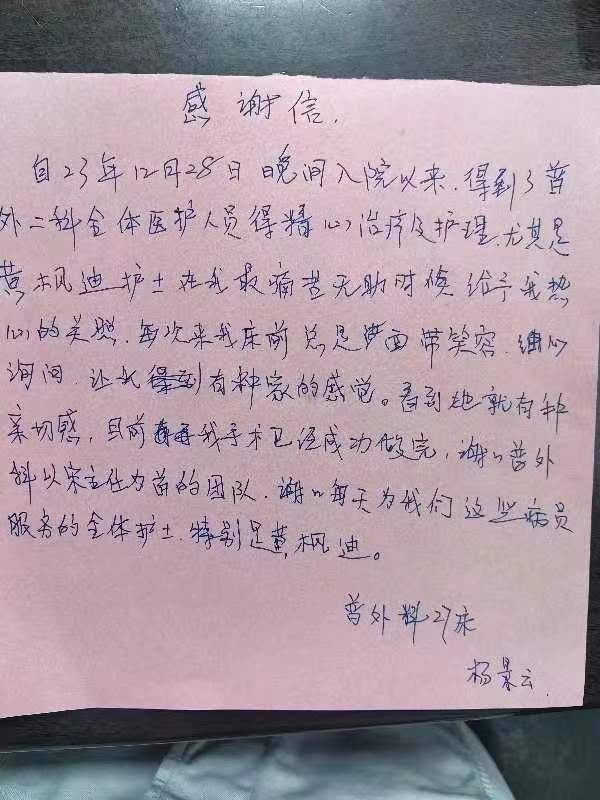 感谢信.
自23年12月28日晚间入院以来.得到了普
外二科全体医护人员得精心治疗及护理.尤其是
黄枫迪护士在我最痛苦无助时候给予我热
心的关照.每次来我床前总是面带笑容.细心
询问.让我得到有种家的感觉。看到她就有种
亲切感,目前我手术已经成功做完,谢谢普外
科以宋主任为首的团队.谢谢每天为我们这些病员
服务的全体护士.特别是黄枫迪。
普外科27床
杨景云.